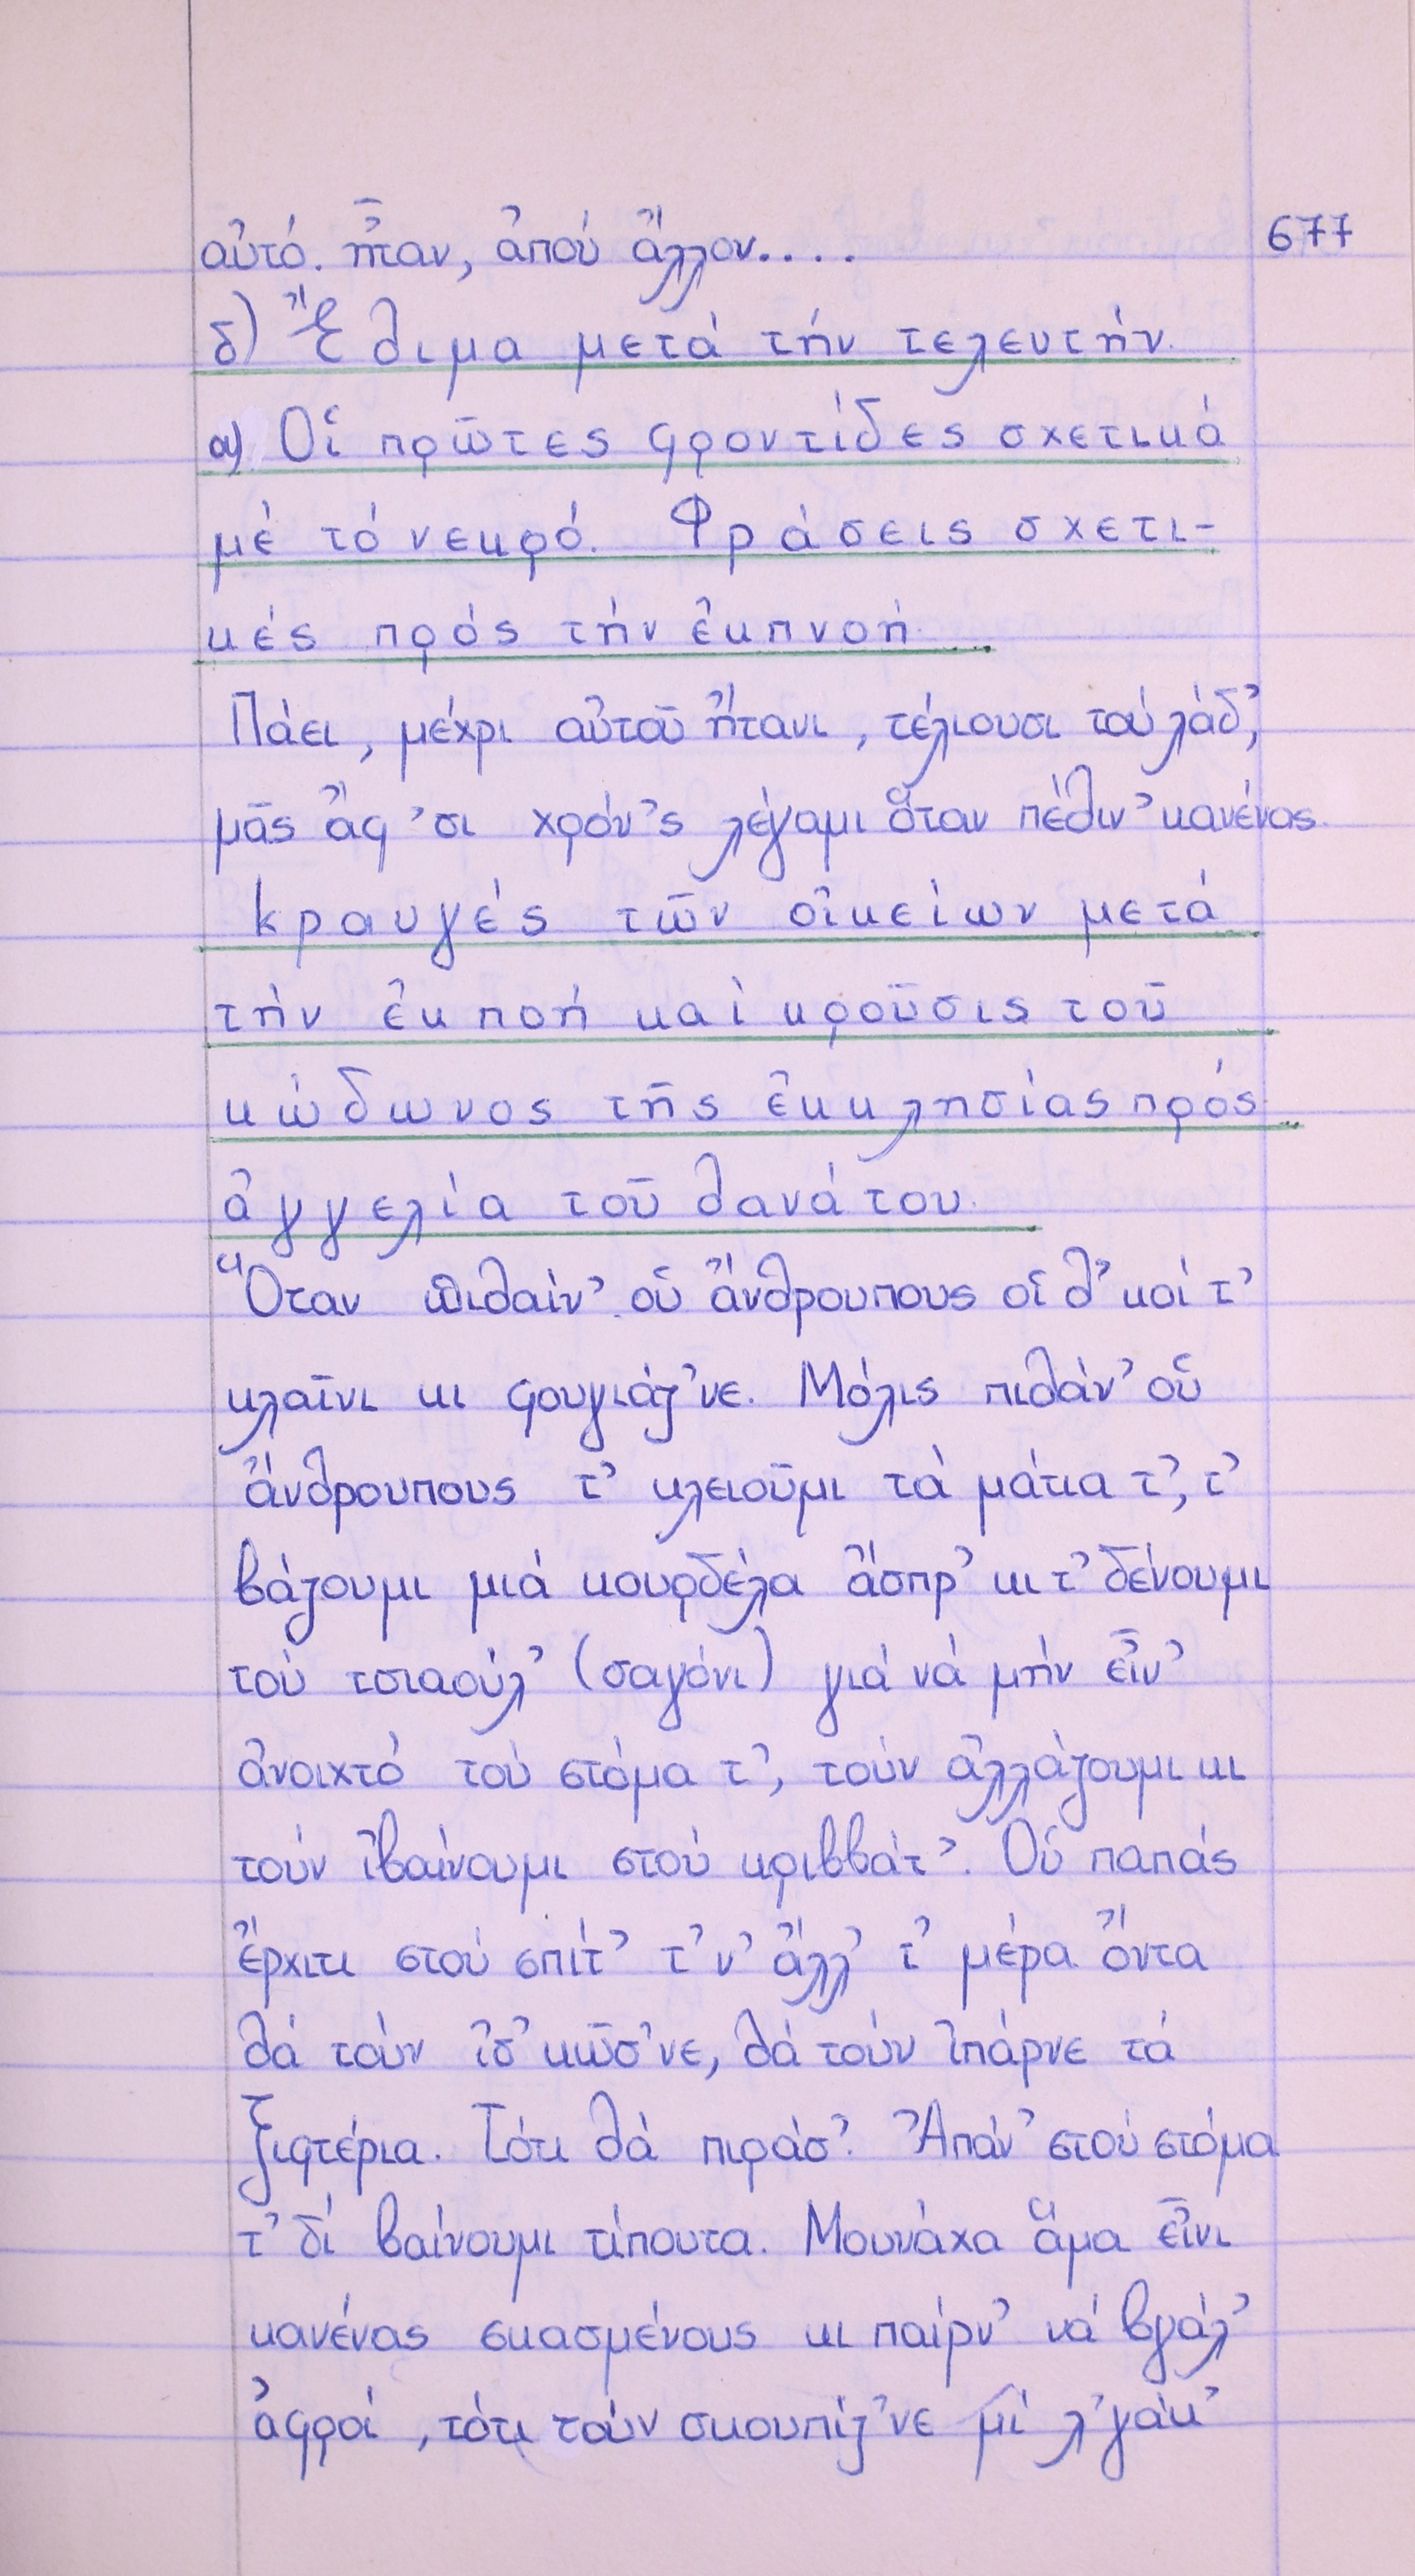 677
αὐτό. ἦταν, ἀπού ἄλλον....
δ) Ἔθιμα μετά τήν τελευτήν.
α) Οἱ πρῶτες φροντίδες σχετικά
μέ τό νεκρό. Φράσεις σχετι-
κές πρός τήν ἐκπνοή.
Πάει, μέχρι αὐτοῦ ἤτανι, τέλιουσι τού λάδ',
μᾶς ἄφ'σι χρόν's λέγαμι ὅταν πέθιν' κανένας.
Κραυγές τῶν οἰκείων μετά
τήν ἐκποή καί κροῦσις τοῦ
κώδωνος τῆς ἐκκλησίας πρός
ἀγγελία τοῦ θανάτου.
Ὅταν πιθαίν' οὑ ἄνθρουπους οἱ θ'κοί τ'
κλαῖνι κι φουγιάζ'νε. Μόλις πιθάν' οὑ
ἄνθρουπους τ' κλειοῦμι τά μάτια τ', τ'
βάζουμι μιά κουρδέλα ἄσπρ' κι τ' δένουμι
τού τσιαούλ' (σαγόνι) γιά νά μήν εἶν'
ἀνοιχτό τού στόμα τ', τούν ἀλλάζουμι κι
τούν ἰβαίνουμι στού κριββάτ'. Οὑ παπάς
ἔρχιτι στού σπίτ' τ'ν' ἄλλ' τ' μέρα ὄντα
θά τούν ἰσ'κῶσ'νε, θά τούν ἰπάρνε τά
ξιφτέρια. Τότι θά πιράσ'. Ἀπάν' στού στόμα
τ' δί βαίνουμι τίπουτα. Μουνάχα ἅμα εἶνι
κανένας σκασμένους κι παίρν' νά βγάλ'
ἀφροί, τότι τούν σκουπίζ'νε μί λ'γάκ'